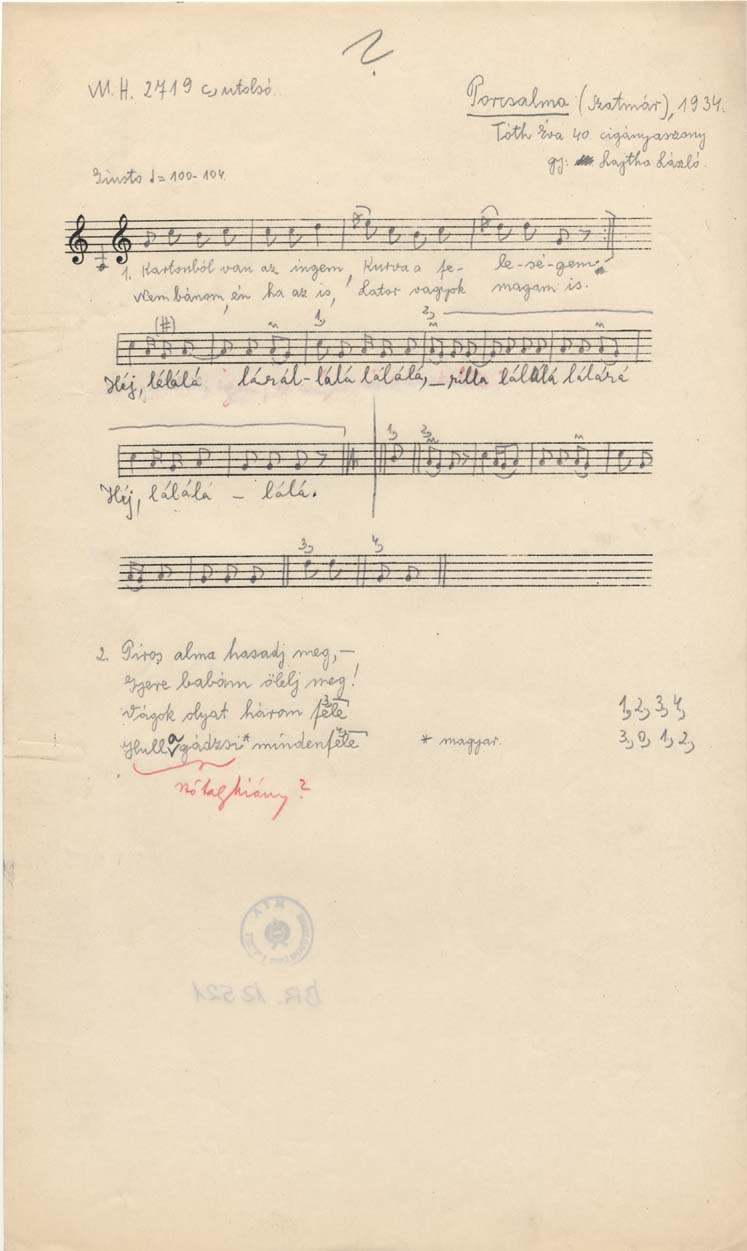 ?
M. H. 2719 c, utolsó.
Porcsalma (Szatmár), 1934.
Tóth Éva 40. cigányasszony
gy: Lajtha László.
Giusto ♩ = 100-104.
1. Kartonból van az ingem, Kurva a fe- le-sé-gem.
Nem bánom, én ha az is, Lator vagyok magam is.
(#) 1, 2,
Héj, lélálá lárál-lálá lálálá, - rilla lálálá lálárá
1, 2,
Héj, lálálá - lálá.
3, 4,
2. Piros alma hasadj meg, -
Gyere babám ölelj meg!
Vágok olyat három féle 1, 2, 3, 4,
Hull a gádzsi* mindenféle * magyar. 3, 0, 1, 2,
szótaghiány?
BR. 12521